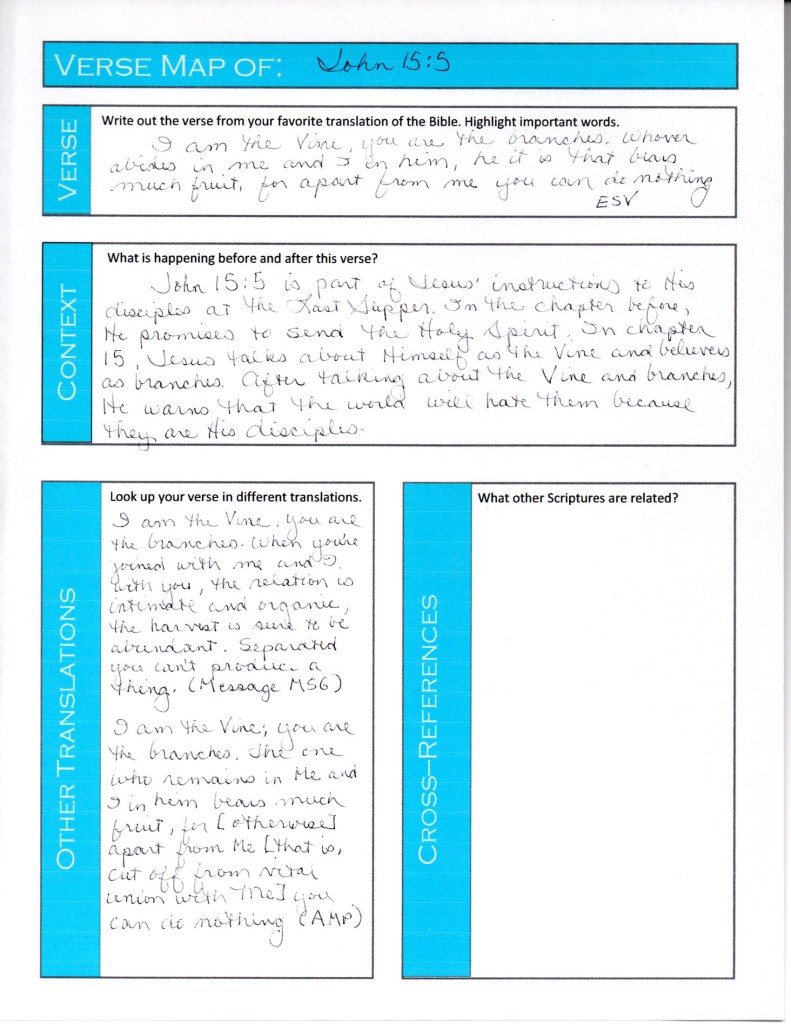 VERSE MAP OF: John 15:5
VERSE
Write out the verse from your favorite translation of the Bible. Highlight important words.
I am the Vine, you are the branches. Whover
abides in me and I in him, he it is that bears
much fruit, for apart from me you can do nothing
ESV
CONTEXT
What is happening before and after this verse?
John 15:5 is part of Jesus' instructions to His
disciples at the Last Supper. In the chapter before,
He promises to send the Holy Spirit. In chapter
15, Jesus talks about Himself as the Vine and believers
as branches. After talking about the Vine and branches,
He warns that the world will hate them because
they are His disciples.
OTHER TRANSLATIONS
Look up your verse in different translations.
I am the Vine, you are
the branches. When you're
joined with me and I
with you, the relation is
intimate and organic,
the harvest is sure to be
abundant. Separated
you can't produce a
thing. (Message MSG)
I am the Vine; you are
the branches. The one
who remains in Me and
I in him bears much
fruit, for [otherwise]
apart from Me [that is,
cut off from vital
union with Me] you
can do nothing (AMP)
CROSS-REFERENCES
What other Scriptures are related?